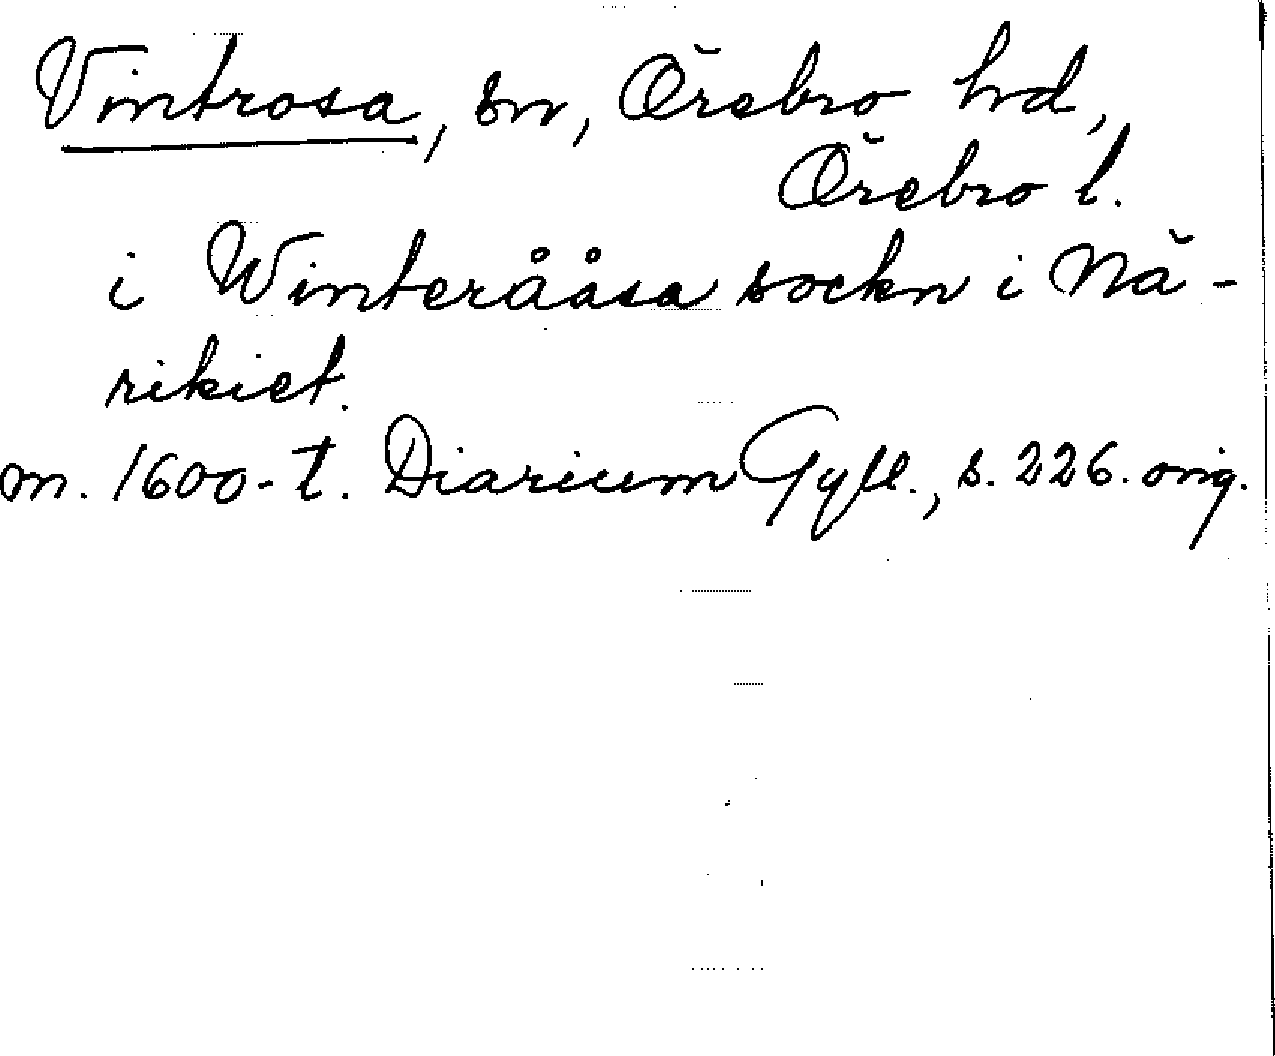 Vintrosa, sn, Örebro hd,
Örebro l.
i Winterååsa sockn i Nä-
rikiet.
m. 1600-t. Diarium Gyll., s. 226. orig.